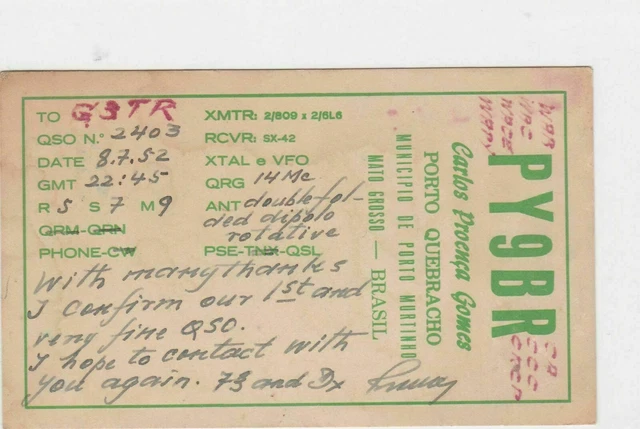 TO G3TR
QSO N.° 2403
DATE 8.7.52
GMT 22:45
R 5 S 7 M 9
QRM-QRN
PHONE-CW
XMTR: 2/809 x 2/6L6
RCVR: SX-42
XTAL e VFO
QRG 14 Mc
ANT double fol-
ded dipolo
rotative
PSE-TNX-QSL
With many thanks
I confirm our 1st and
very fine QSO.
I hope to contact with
you again. 73 and Dx
PY9BR
Carlos Proença Gomes
PORTO QUEBRACHO
MUNICIPIO DE PORTO MURTINHO
MATO GROSSO — BRASIL